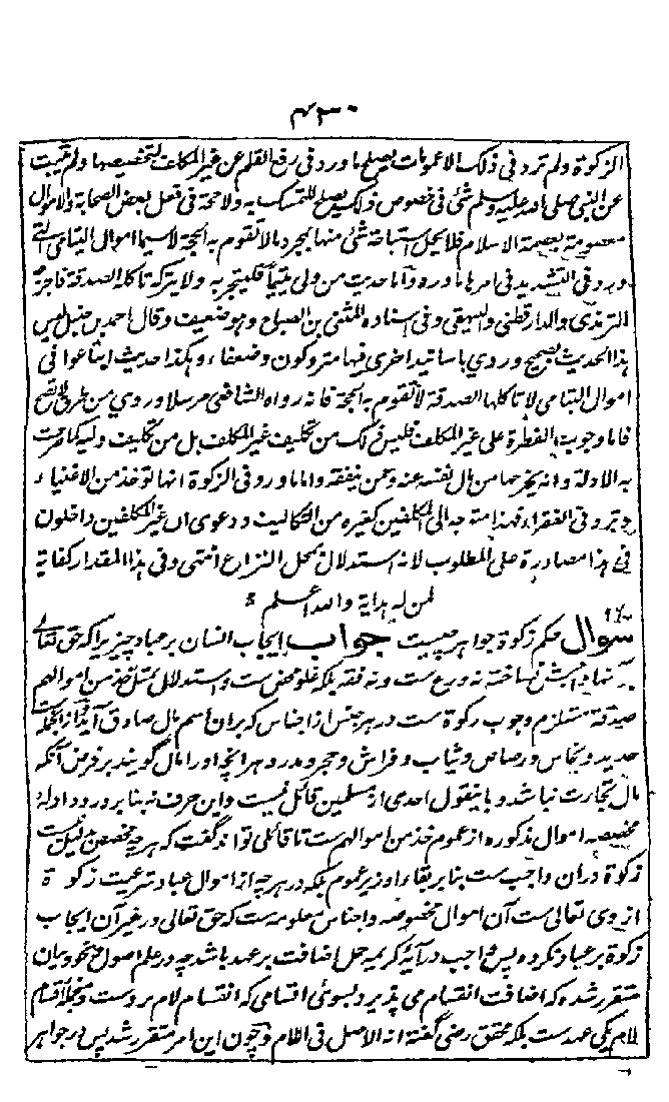 ۴۳۰
الزکوة ولم ترد فی ذلک الا عمومات یصلح ما ورد فی رفع القلم عن غیر المکلف لتخصیصها ولم یثبت
عن النبی صلی الله علیه وسلم شئ فی خصوص ذلک یصلح للتمسک به ولا حجة فی فعل بعض الصحابة والاموال
معصومة بعصمة الاسلام فلا یحل استباحة شئ منها بمجرد ما لا تقوم به الحجة لاسیما اموال الیتامی التی
ورد فی التشدید فی امرها ما ورد واما حدیث من ولی یتیما فلیتجر به ولا یترکه تاکله الصدقة فاخرجه
الترمذی والدارقطنی والبیهقی وفی اسناده المثنی بن الصباح وهو ضعیف وقال احمد بن حنبل لیس
هذا الحدیث بصحیح وروی باسانید اخری فیها متروکون وضعفاء وهکذا حدیث ابتاعوا فی
اموال الیتامی لا تاکلها الصدقة لا تقوم به الحجة فانه رواه الشافعی مرسلا وروی من طرق لا تصح
فاما وجوب الفطرة علی غیر المکلف فلیس ذلک من تکلیف غیر المکلف بل من تکلیف ولیه کما صرحت
به الادلة وانه یخرجها من مال نفسه عنه وعمن ینفقه واما ما ورد فی الزکوة انها توخذ من الاغنیاء
وترد فی الفقراء فهذا متوجه الی المکلفین کغیره من التکالیف ودعوی ان غیر المکلفین داخلون
فی هذا مصادرة علی المطلوب لانه استدلال بمحل النزاع انتهی وفی هذا المقدار کفایة
لمن له هدایة والله اعلم
سوال حکم زکوة جواهر چیست جواب ایجاب انسان بر عباد چیزیرا که حق تعالی
بر ایشان نساخته نه ورع ست ونه فقه بلکه غلو محض ست واستدلال بمثل خذ من اموالهم
صدقة مستلزم وجوب زکوة ست در هر جنس از اجناس که بران اسم مال صادق آید وازانجمله است
حدید ونحاس ورصاص وثیاب وفراش وحجر ومدر وهر انچه او را مال گویند بر فرض آنکه
مال تجارت نباشد وباینقول احدی از مسلمین قائل نیست واین حرف نه بنا بر ورود ادله
مخصصه اموال مذکوره از عموم خذ من اموالهم ست تا قائلی تواند گفت که هر چه مخصص بدلیل نیست
زکوة دران واجب ست بنا بر بقاء او زیر عموم بلکه در هر چه از اموال عباد شرعیت زکوة
از وی تعالی ست آن اموال مخصوصه واجناس معلومه ست که حق تعالی در غیر آن ایجاب
زکوة بر عباد نکرده پس واجب در آیه کریمه حمل اضافت بر عهد باشد چه در علم اصول ونحو وبیان
متقرر شده که اضافت انقسام می پذیرد بسوئ اقسامی که انقسام لام بروست ومنجمله اقسام
لام یکی عهد ست بلکه محقق رضی گفته انه الاصل فی اللام وچون این امر متقرر شد پس در جواهر